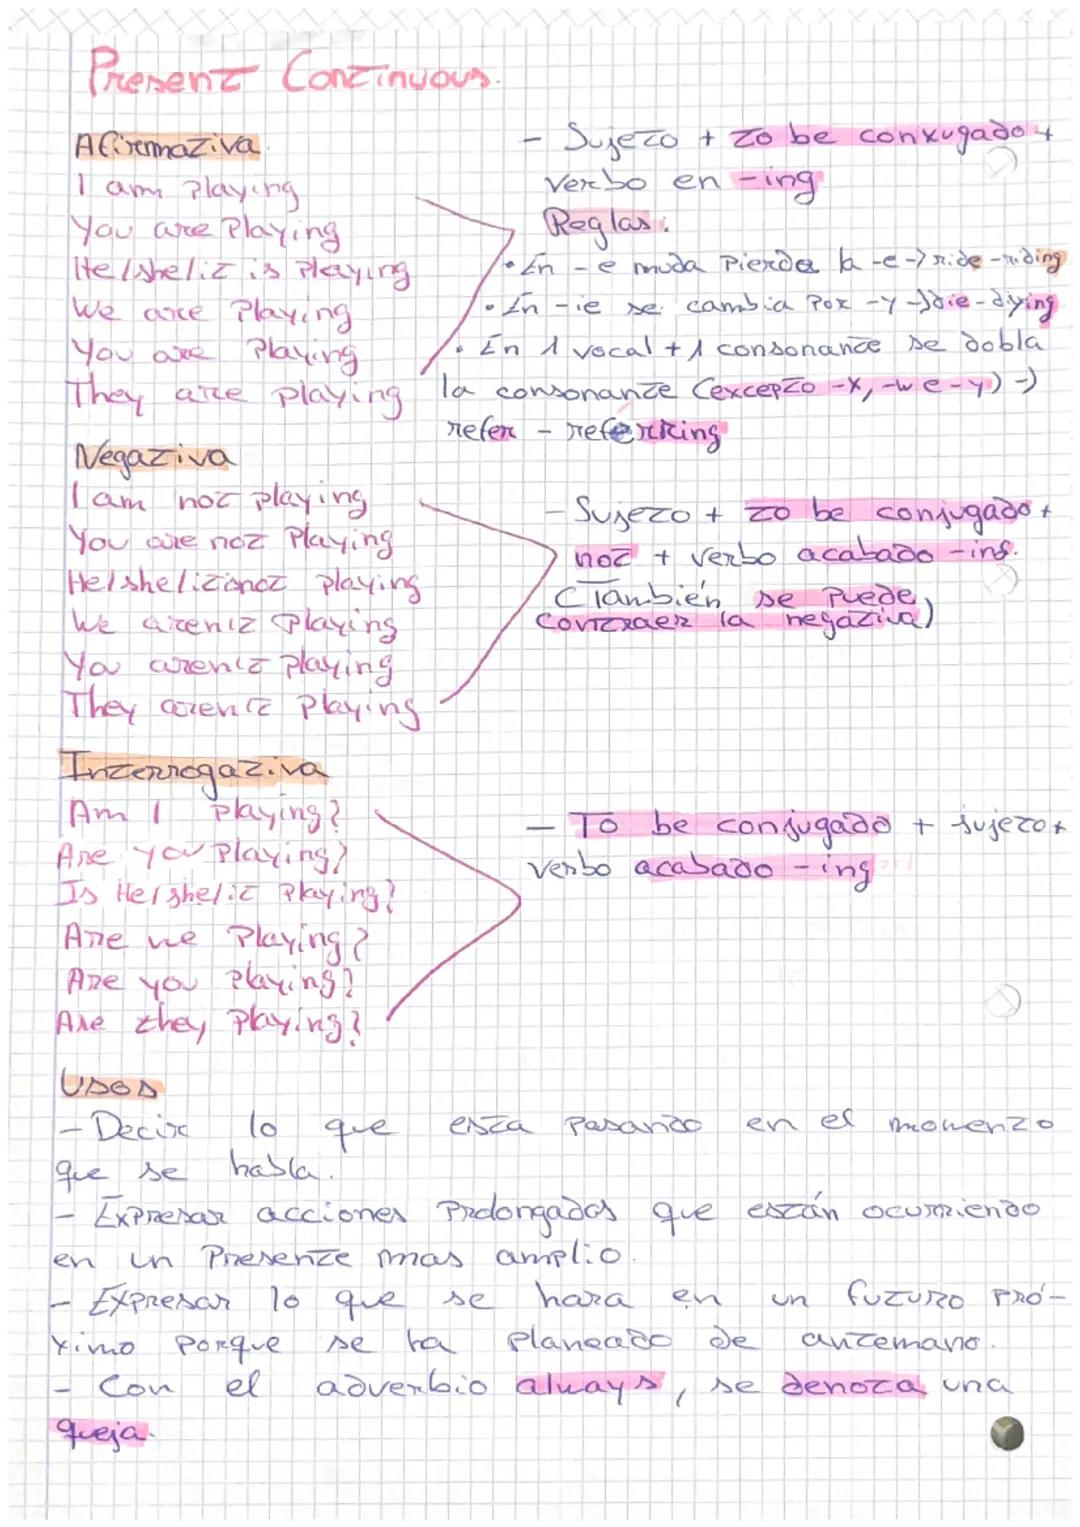 Present Continuous.
Afirmativa.
I am playing
You are playing
He/she/it is playing
We are playing
You are playing
They are playing
- Sujeto + to be conxugado +
verbo en -ing
Reglas:
• En -e muda pierde la -e -> ride - riding
• En -ie se cambia por -y -> die - diying
• En 1 vocal + 1 consonante se dobla
la consonante (excepto -x, -w e -y) ->
refer - referring
Negativa
I am not playing
You are not playing
He/she/it is not playing
We aren't playing
You aren't playing
They aren't playing
- Sujeto + to be conjugado +
not + verbo acabado -ing.
(También se puede
contraer la negativa)
Interrogativa
Am I playing?
Are you playing?
Is He/she/it playing?
Are we playing?
Are you playing?
Are they playing?
- To be conjugado + sujeto +
verbo acabado -ing
Usos
- Decir lo que esta pasando en el momento
que se habla.
- Expresar acciones prolongados que están ocurriendo
en un presente mas amplio.
- Expresar lo que se hara en un futuro pró-
ximo porque se ha planeado de antemano.
- Con el adverbio always, se denota una
queja.